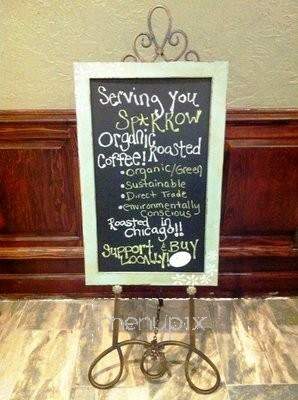 Serving you
SP*RROW
Organic
Roasted
Coffee!
• Organic/Green
• Sustainable
• Direct Trade
• environmentally
conscious
Roasted in
Chicago!!
Support & BUY
Locally!
menupix